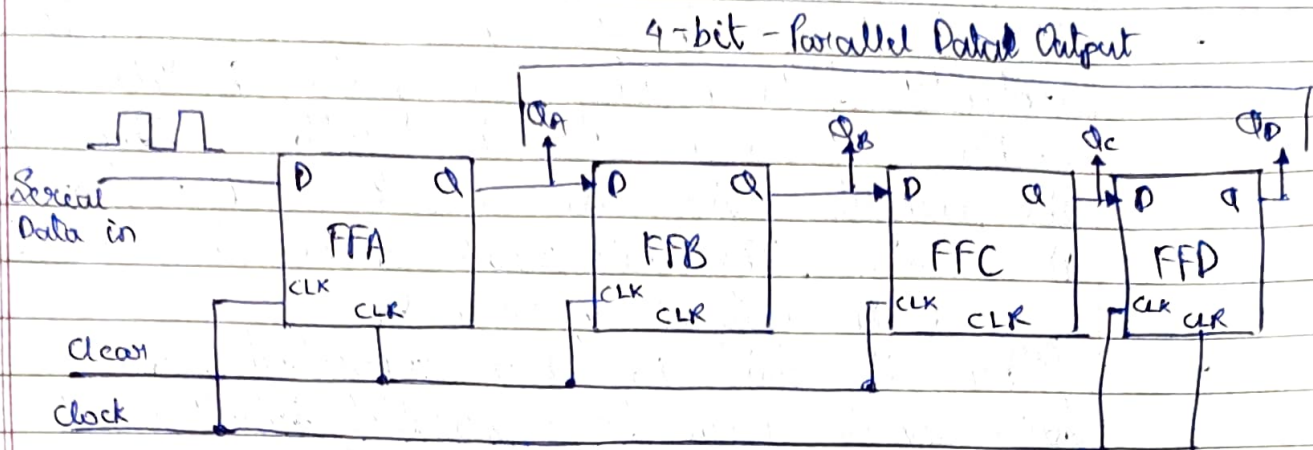 4-bit - Parallel Data Output
QA
QB
QC
QD
Serial
Data in
D Q
FFA
CLK
CLR
D Q
FFB
CLK
CLR
D Q
FFC
CLK
CLR
D Q
FFD
CLK
CLR
Clear
Clock